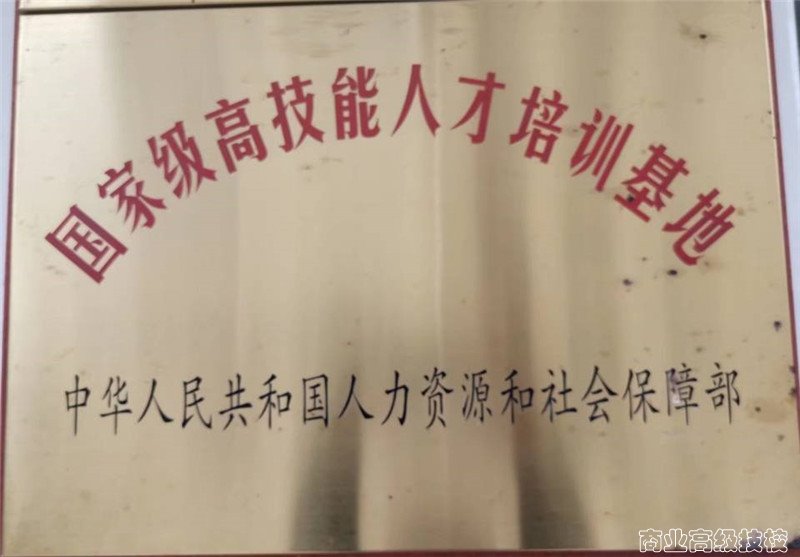 国家级高技能人才培训基地
中华人民共和国人力资源和社会保障部
商业高级技校